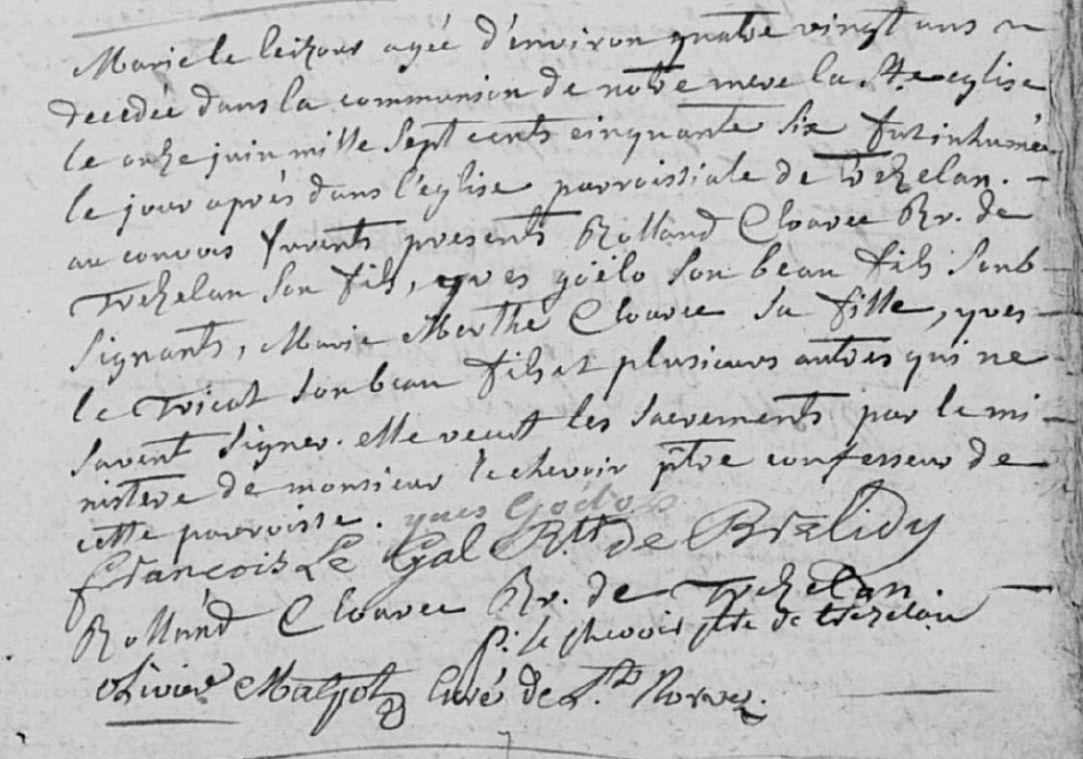 Marie le leizour agée d'environ quatre vingt ans
decedée dans la communion de notre mere la Ste eglise
le onze juin mille sept cents cinquante six fut inhumée
le jour après dans l'eglise parroissiale de trezelan. -
au convois furent presents Rolland Clouarec Rr. de
trezelan son fils, yves goëlo son beau fils soub-
signants, Marie Marthe Clouarec sa fille, yves-
le tricot son beau fils et plusieurs autres qui ne
savent signer. elle recut les sacrements par le mi-
nistere de monsieur le chevoir ptre confesseur de
cette parroisse. yves Goëlo
françois Le Gal Rtr de Brelidy
Rolland Clouarec Rr. de Trezelan.
p. le chevoir ptre de trezelan
olivier Curé de St.